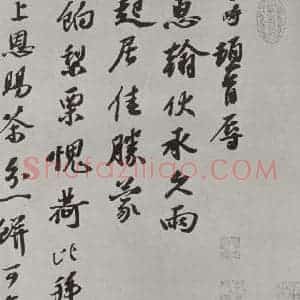 畤頓首辱
惠翰伏承久雨
起居佳勝蒙
餉梨栗愧荷比
上恩賜茶分一餅可
Shufaziliao.com